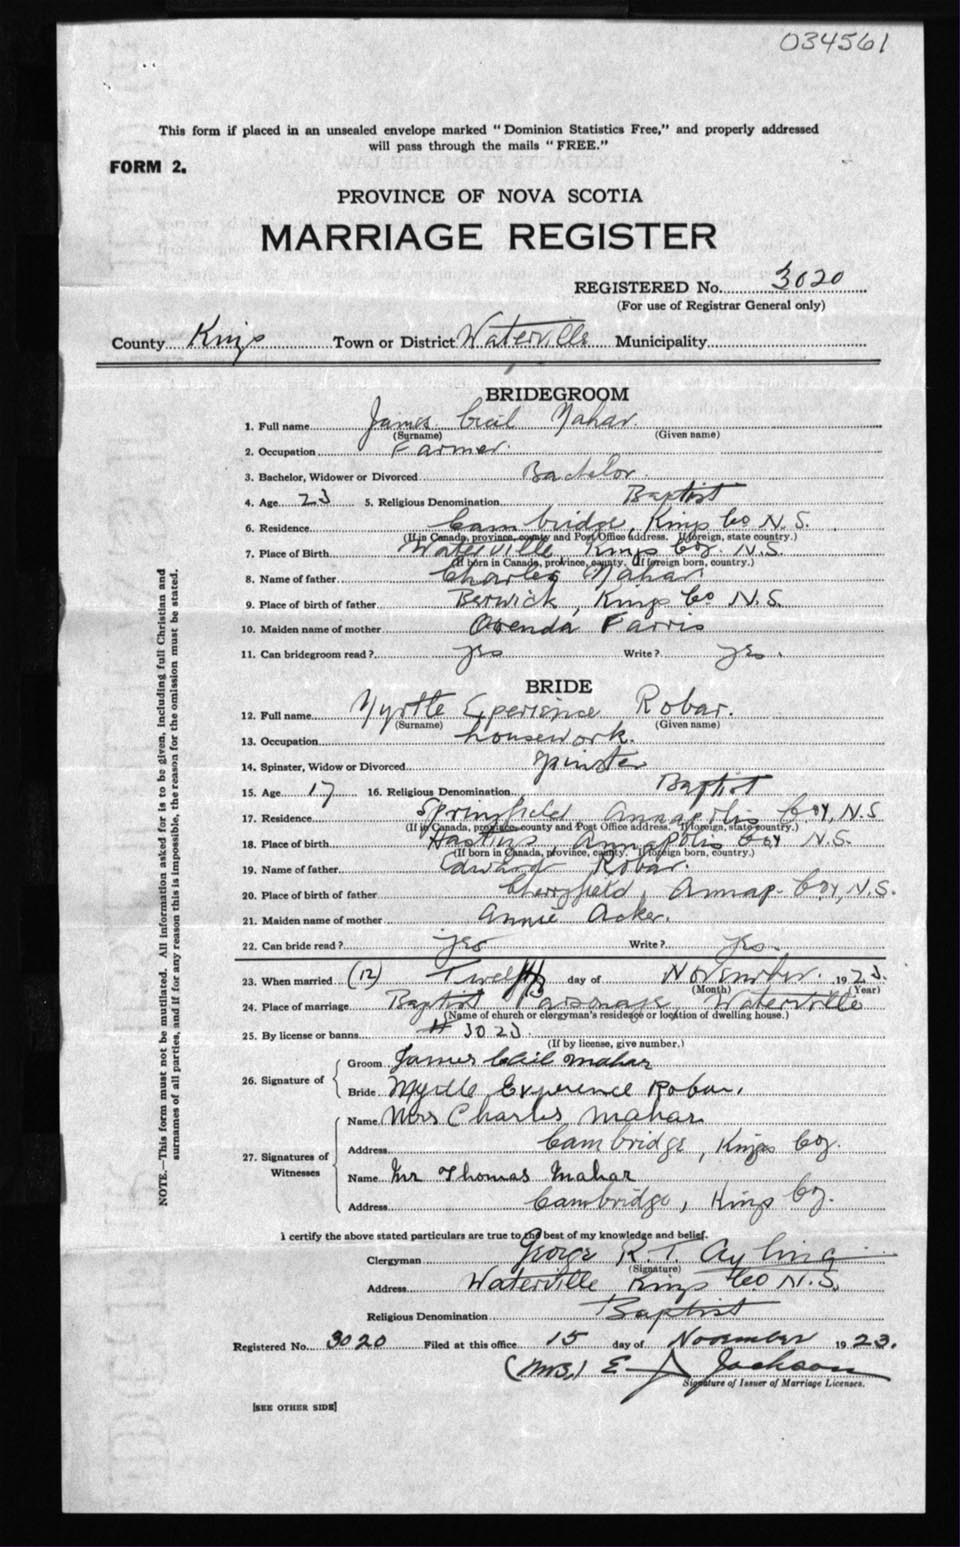 034561
This form if placed in an unsealed envelope marked "Dominion Statistics Free," and properly addressed
will pass through the mails "FREE."
FORM 2.
PROVINCE OF NOVA SCOTIA
MARRIAGE REGISTER
REGISTERED No. 3020
(For use of Registrar General only)
County Kings Town or District Waterville Municipality
BRIDEGROOM
1. Full name James Cecil Mahar.
(Surname) (Given name)
2. Occupation Farmer.
3. Bachelor, Widower or Divorced Bachelor.
4. Age 23 5. Religious Denomination Baptist
6. Residence Cambridge, Kings Co N.S.
(If in Canada, province, county and Post Office address. If foreign, state country.)
7. Place of Birth Waterville Kings Coy. N.S.
(If born in Canada, province, county. If foreign born, country.)
8. Name of father Charles Mahar.
9. Place of birth of father Berwick, Kings Co N.S.
10. Maiden name of mother Farris
11. Can bridegroom read? yes Write? yes.
BRIDE
12. Full name Myrtle Experience Robar.
(Surname) (Given name)
13. Occupation housework.
14. Spinster, Widow or Divorced Spinster
15. Age 17 16. Religious Denomination Baptist
17. Residence Springfield Annapolis Coy, N.S
(If in Canada, province, county and Post Office address. If foreign, state country.)
18. Place of birth Hastins, Annapolis Coy N.S.
(If born in Canada, province, county. If foreign born, country.)
19. Name of father Edward Robar.
20. Place of birth of father Cherryfield, Annap. Coy, N.S.
21. Maiden name of mother Annie Acker.
22. Can bride read? yes Write? yes.
23. When married (12) Twelfth day of November. 1923.
(Month) (Year)
24. Place of marriage Baptist Parsonage Waterville
(Name of church or clergyman's residence or location of dwelling house.)
25. By license or banns # 3023.
(If by license, give number.)
26. Signature of
Groom James Cecil Mahar
Bride Myrtle Experence Robar,
27. Signatures of Witnesses
Name Mrs Charles Mahar
Address Cambridge, Kings Coy.
Name Mr Thomas Mahar
Address Cambridge, Kings Coy.
I certify the above stated particulars are true to the best of my knowledge and belief.
Clergyman George R.T. Ayling
(Signature)
Address Waterville Kings Co. N.S.
Religious Denomination Baptist
Registered No. 3020 Filed at this office 15 day of November 1923.
(Mrs.) E Jackson
Signature of Issuer of Marriage Licenses.
[SEE OTHER SIDE]
NOTE.—This form must not be mutilated. All information asked for is to be given, including full Christian and
surnames of all parties, and if for any reason this is impossible, the reason for the omission must be stated.